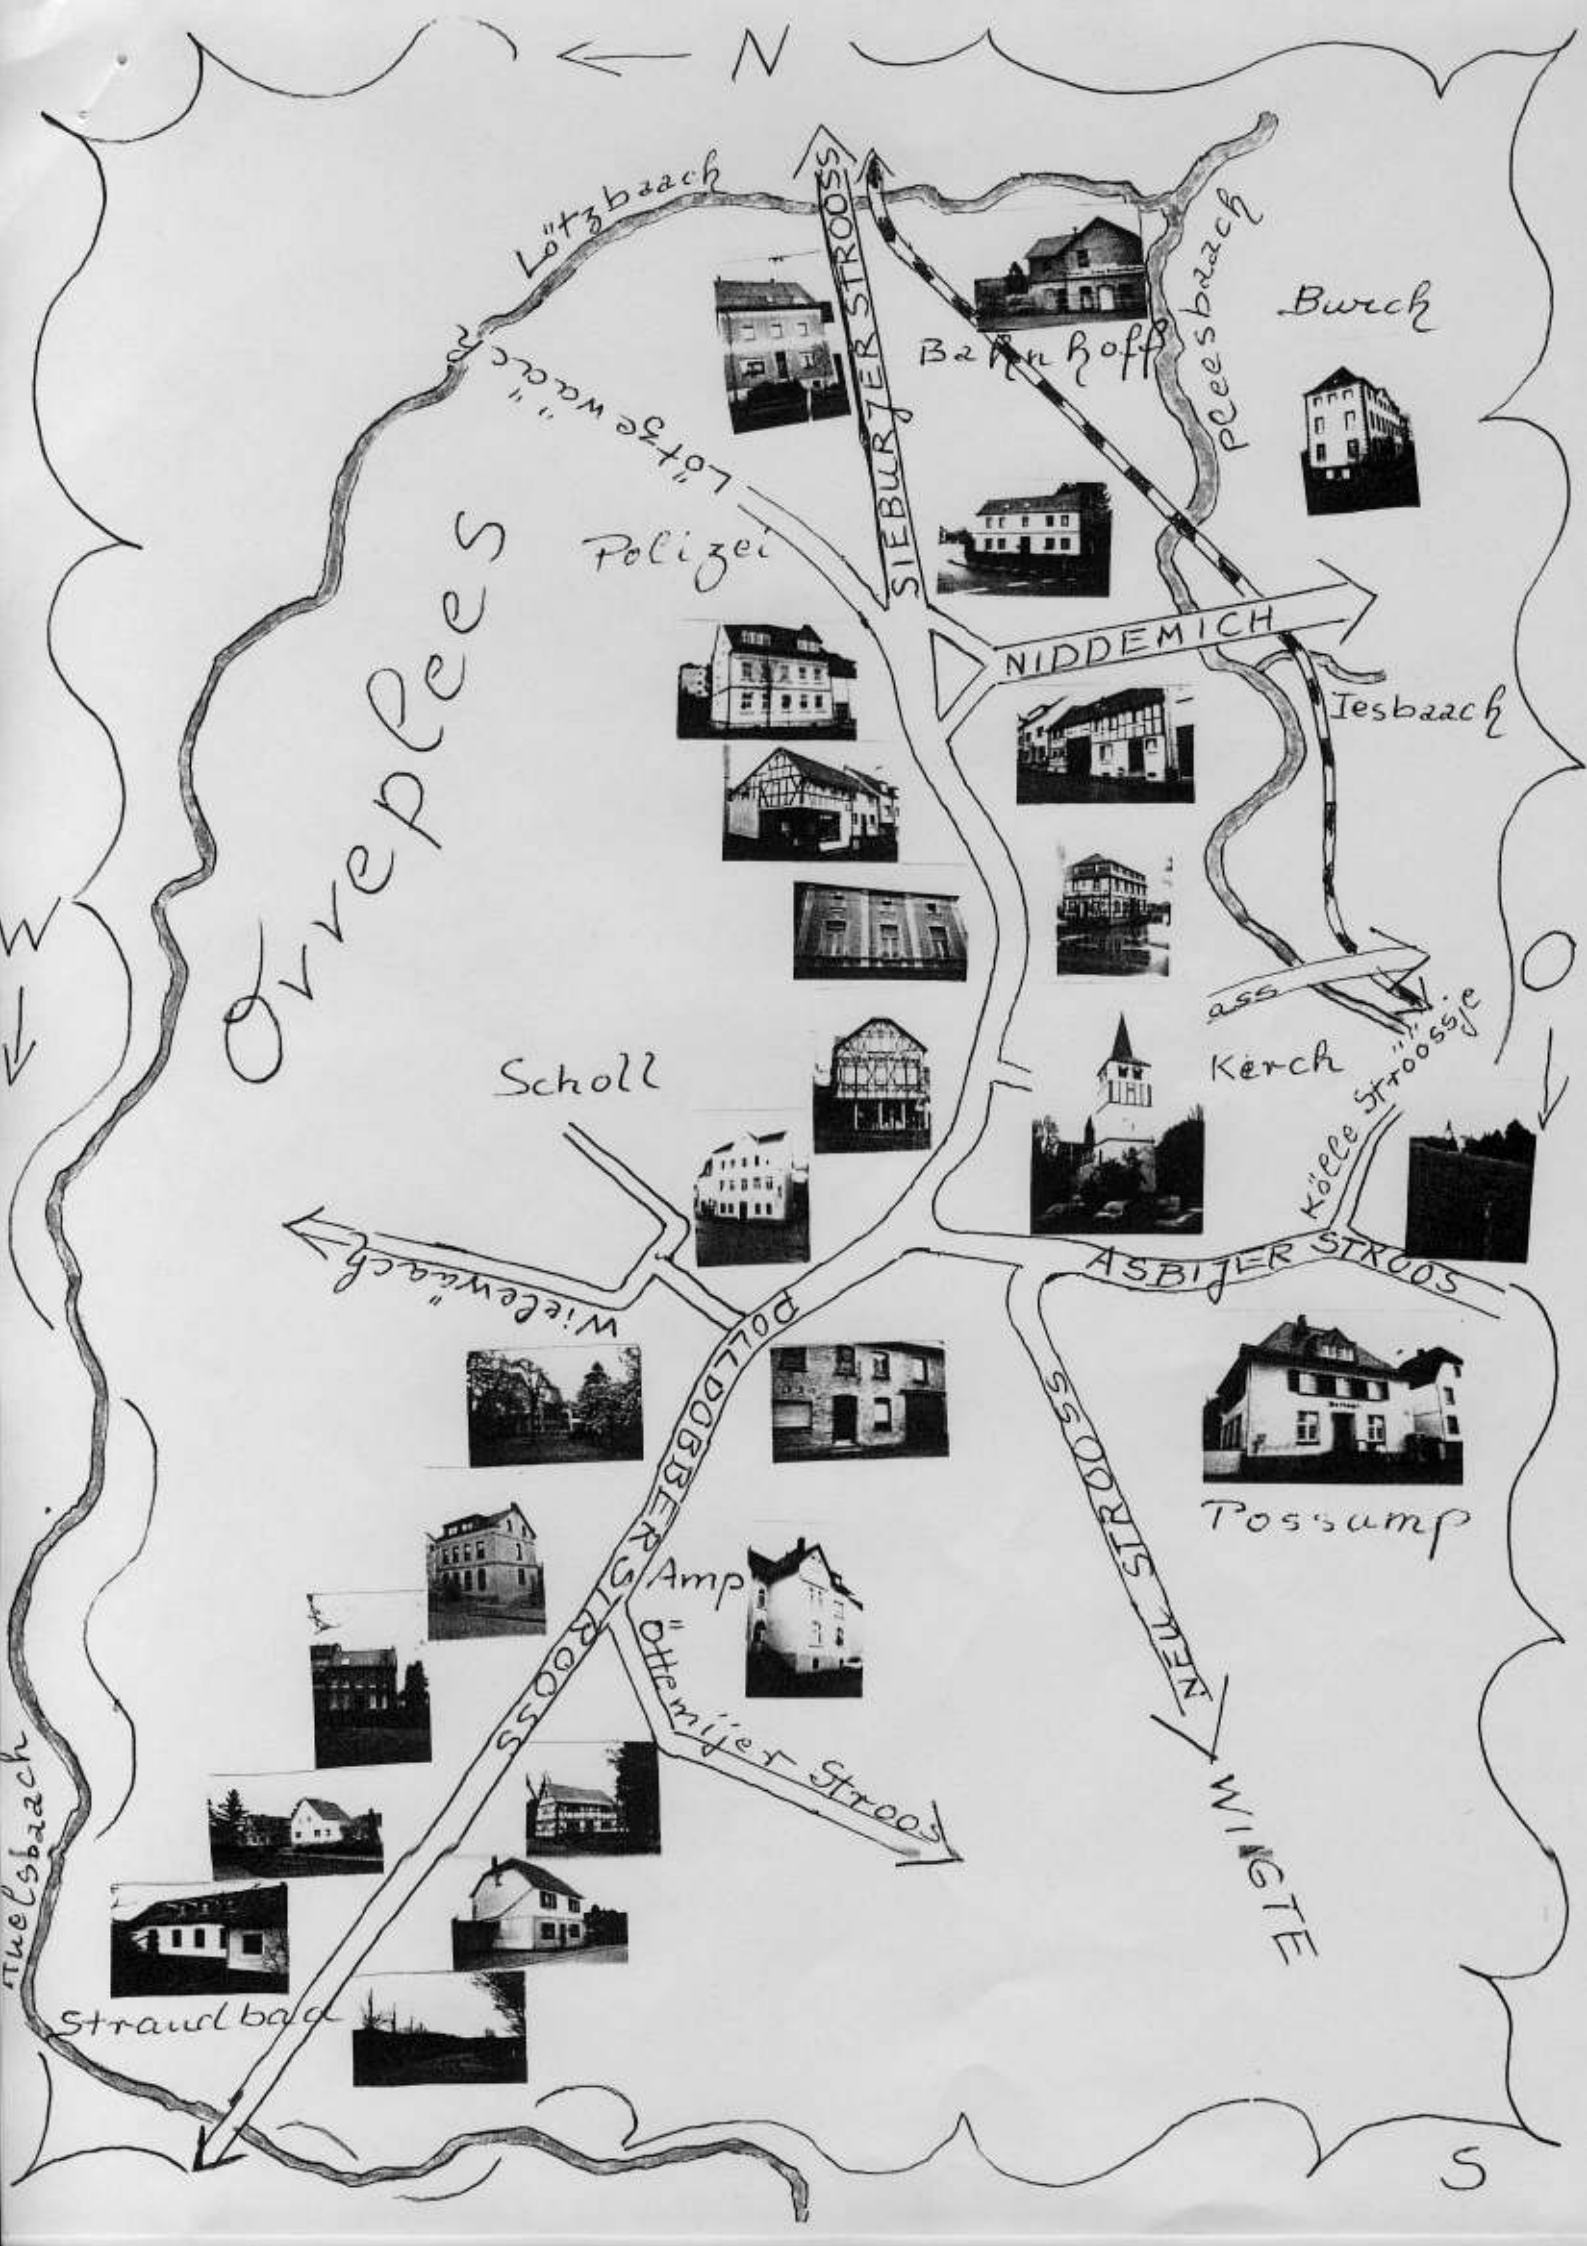 N
Lötzbaach
SIEBURJER STROOSS
Bahnhoff
Pleesbaach
Burch
Lötzewääch
Polizei
Övveplees
NIDDEMICH
Iesbaach
W
O
ass
Kölle Ströössje
Kerch
Scholl
Wielewääch
ASBIJER STROOS
DOLLDOBBER STROOSS
NEU STROOSS
Possamp
Amp
Öttemijer Stroos
WINGTE
Strandbad
S